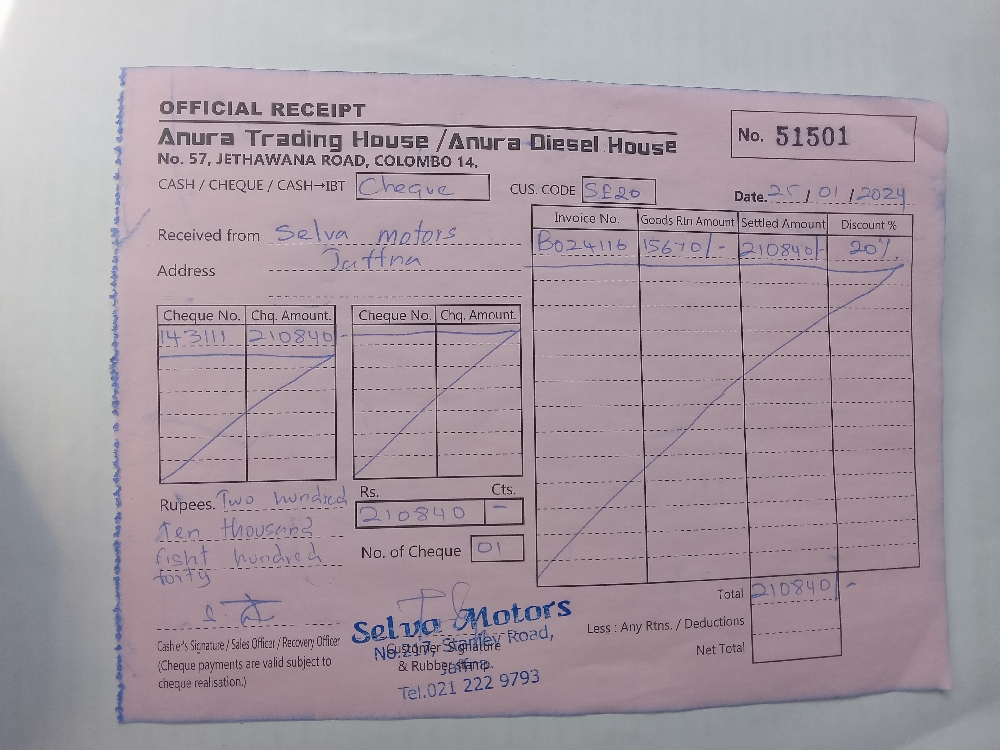 OFFICIAL RECEIPT
Anura Trading House / Anura Diesel House
No. 57, JETHAWANA ROAD, COLOMBO 14.
No. 51501
CASH / CHEQUE / CASH→IBT Cheque CUS. CODE SE20 Date. 25 / 01 / 2024
Received from Selva motors
Address Jaffna
Invoice No. Goods Rtn Amount Settled Amount Discount %
B024116 15670/- 210840/- 20%
Cheque No. Chq. Amount. Cheque No. Chq. Amount.
143111 210840 -
Rupees. Two hundred
ten thousand
eight hundred
forty
Rs. Cts.
210840 -
No. of Cheque 01
Total 210840/-
Less : Any Rtns. / Deductions
Net Total
Cashier's Signature / Sales Officer / Recovery Officer
(Cheque payments are valid subject to
cheque realisation.)
Customer Signature
& Rubber Stamp.
Selva Motors
No.217, Stanley Road,
Jaffna.
Tel.021 222 9793